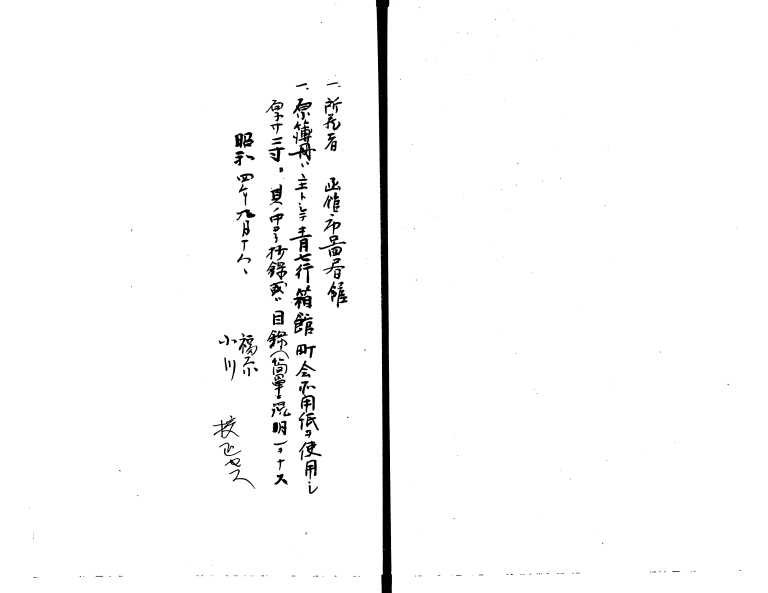 一、所蔵者 函館市図書館
一、原簿冊ハ主トシテ青七行箱館町会所用紙ヲ使用シ
厚サ二寸、其ノ中ヨリ抄録或ハ目録（簡単ナ説明）ヲナス
昭和四年九月十八日
福原
小川 校正セス